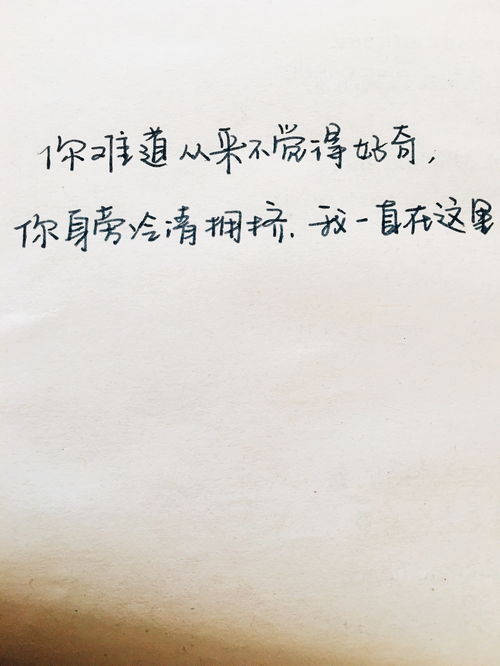 你难道从来不觉得好奇，
你身旁冷清拥挤．我一直在这里